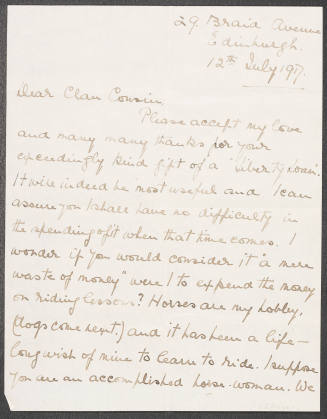 29. Braid Avenue
Edinburgh.
12th July 197.
Dear Clan Cousin,
Please accept my love
and many many thanks for your
exceedingly kind gift of a "Liberty Loan".
It will indeed be most useful and I can
assure you I shall have no difficulty in
the spending of it when that time comes. I
wonder if you would consider it "a mere
waste of money" were I to expend the money
on riding lessons? Horses are my hobby,
(dogs come next.) and it has been a life-
long wish of mine to learn to ride. I suppose
you are an accomplished horse-woman. We